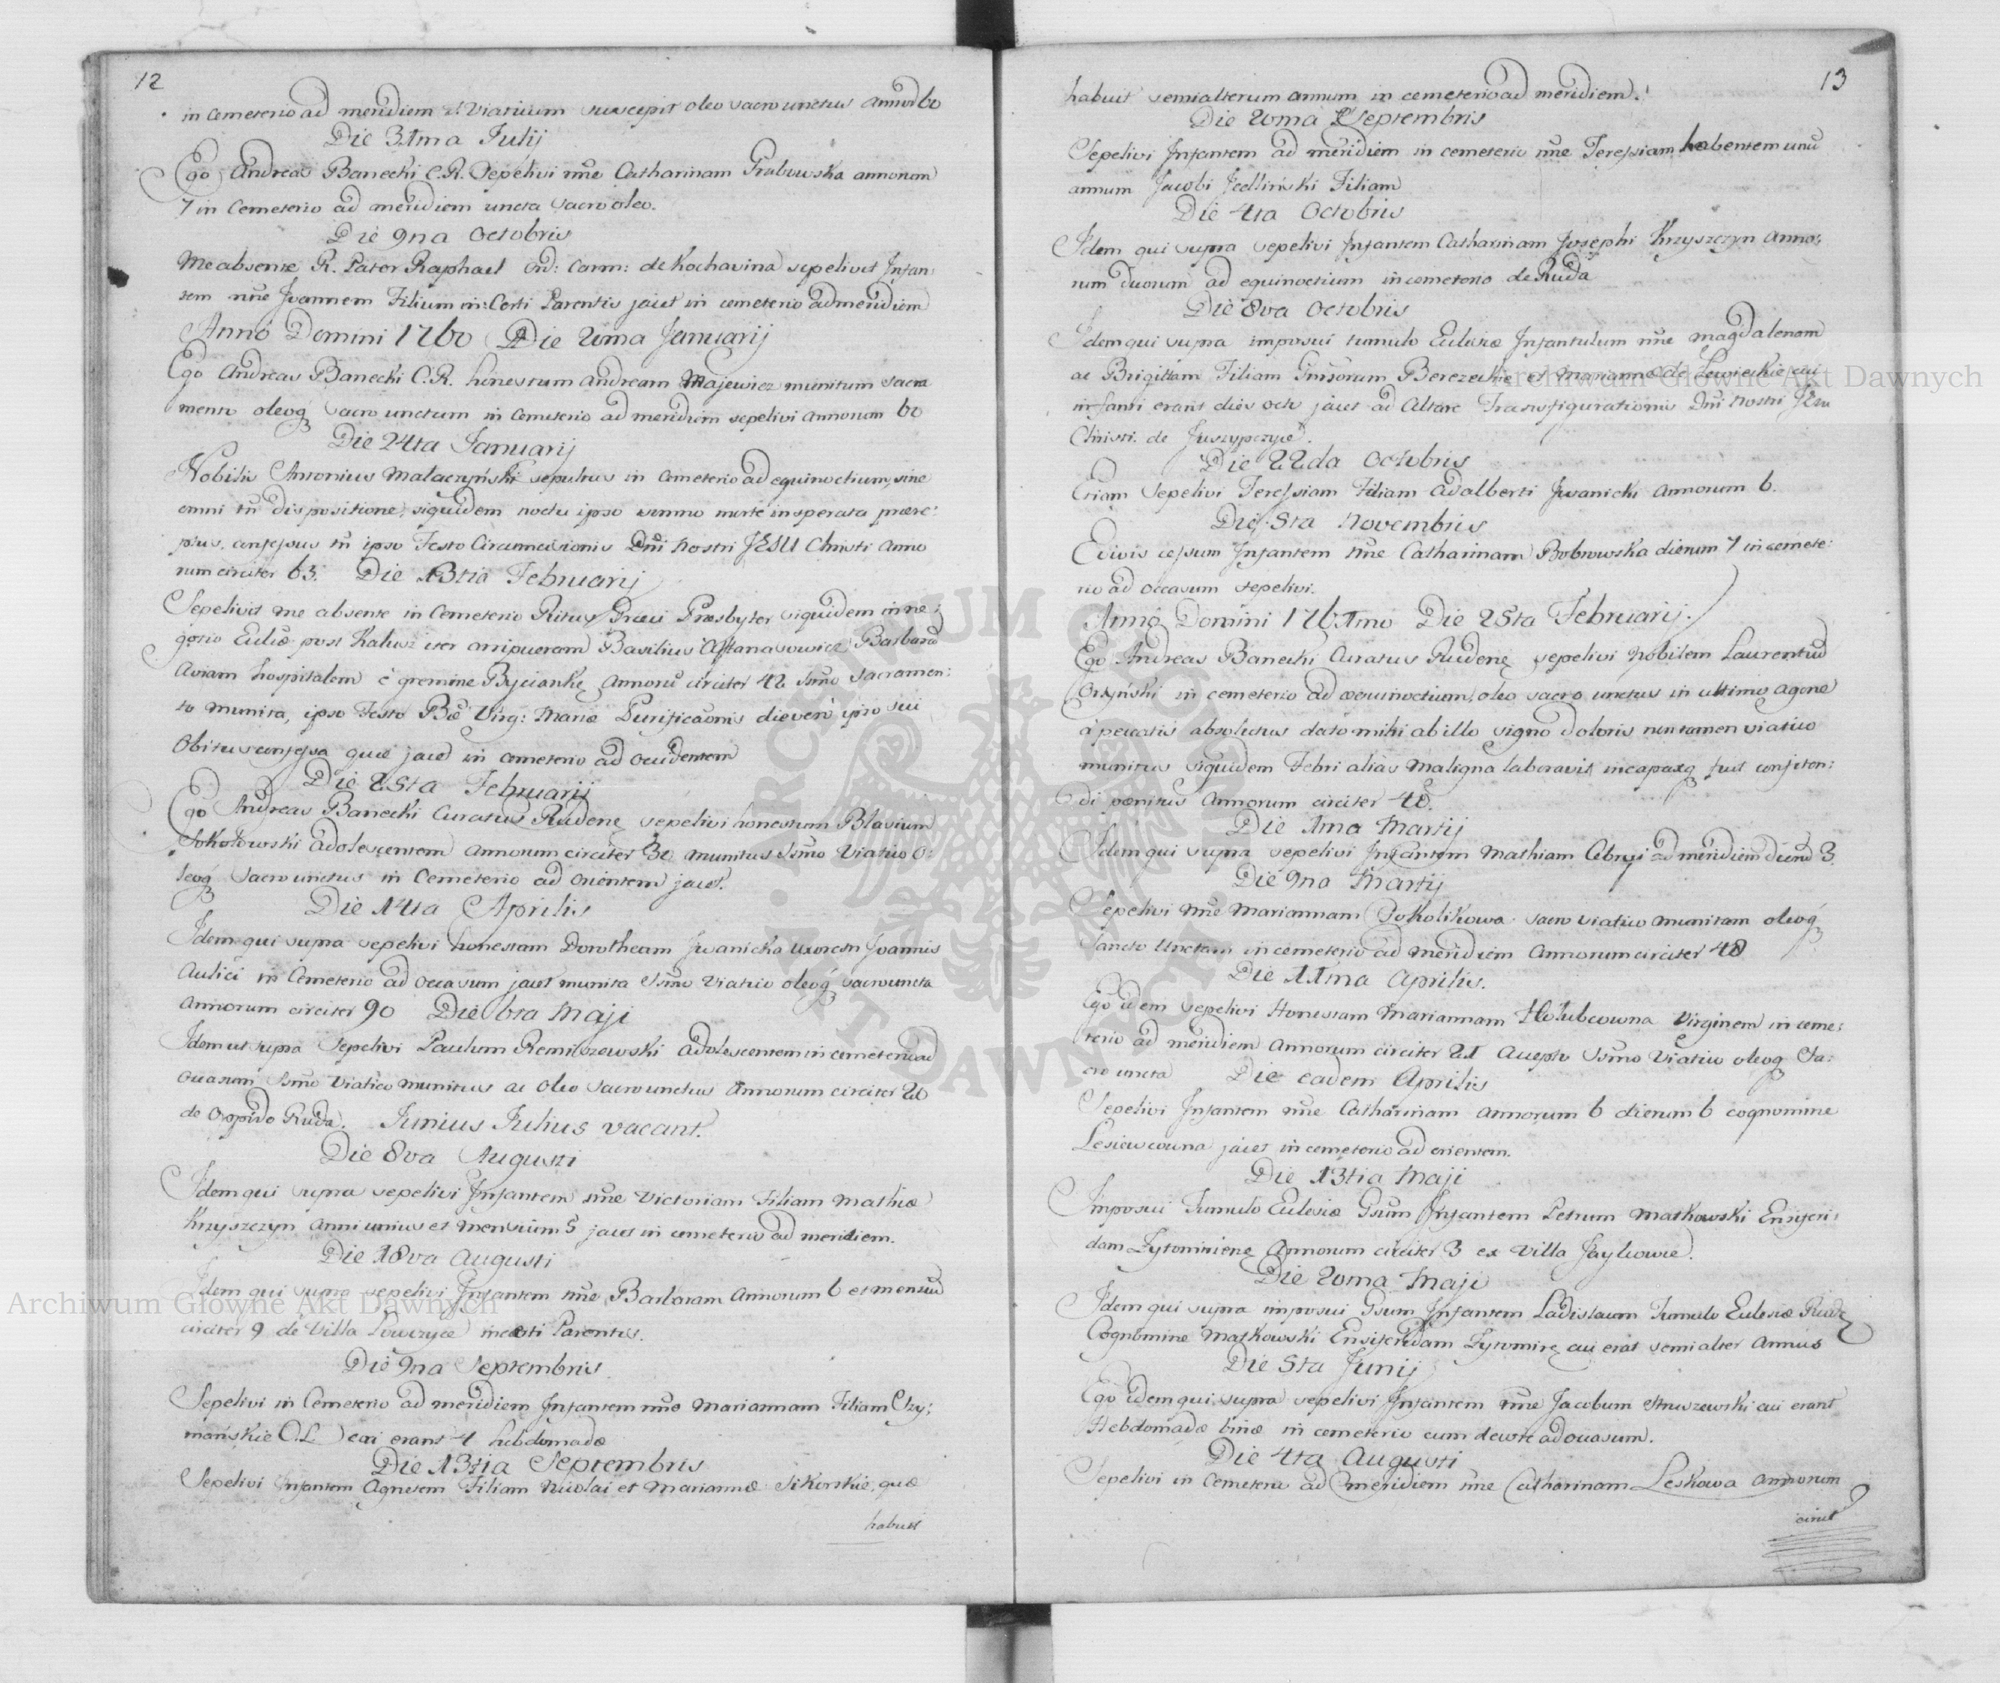 12
in Cemeterio ad meridiem et Viaticum suscepit oleo sacro unctus annor 60
Die 31ma Julij
Ego Andreas Banecki C.R. Sepelivi nne Catharinam Grabowska annorum
7 in Cemeterio ad meridiem uncta sacro oleo.
Die 9na Octobris
Me absente R. Pater Raphael Ord: Carm: de Kochavina sepelivit Infan:
tem nne Joannem Filium in: Certi Parentis jacet in cemeterio ad meridiem
Anno Domini 1760 Die 20ma Januarij
Ego Andreas Banecki C.R. honestum Andream Majewicz munitum sacra
mento oleoq sacro unctum in Cemeterio ad meridiem sepelivi Annorum 60
Die 24ta Januarij
Nobilis Antonius Małaczyński sepultus in Cemeterio ad equinoctium, sine
omni tn dispositione, siquidem noctu ipso somno morte insperata praere:
ptus, confessus tn ipso Festo Circumcisionis Dni Nostri JESU Christi Anno
rum circiter 63. Die 13tia Februarij
Sepelivit me absente in Cemeterio Ritus Graeci Presbyter siquidem in ne:
gotio Eccliae post Kalusz iter arripueram Basilius Astanasowicz Barbaram
Aviam hospitalem è gremine Bycianke Annorũ circiter 42 Ssmo Sacramen:
to munita, ipso Festo Bae Virg: Mariae Purificaonis die verò ipso sui
Obitus confessa quae jacet in cemeterio ad occidentem
Die 25ta Februarij
Ego Andreas Banecki Curatus Rudenę sepelivi honestum Blasium
Sokołowski adolescentem annorum circiter 30 munitus Ssmo Viatico O:
leoq sacro unctus in Cemeterio ad orientem jacet.
Die 14ta Aprilis
Idem qui supra sepelivi honestam Dorotheam Iwanicka uxorem Joannis
Aulici in Cemeterio ad occasum jacet munita Ssmo Viatico oleoq sacro uncta
Annorum circiter 90 Die 6ta Maji
Idem ut supra Sepelivi Paulum Remiszewski Adolescentem in cemeterio ad
occasum Ssmo Viatico munitus ac Oleo sacro unctus Annorum circiter 20
de Oppido Ruda. Junius Julius vacant.
Die 8va Augusti
Idem qui supra sepelivi Infantem nne Victoriam Filiam Mathiae
Krzyszczyn Anni unius et Mensium 5 jacet in cemeterio ad meridiem.
Die 18va Augusti
Idem qui supra sepelivi Infantem nne Barbaram Annorum 6 et mensiũ
circiter 9 de Villa Lowczyce incerti Parentis.
Die 9na Septembris
Sepelivi in Cemeterio ad meridiem Infantem nne Mariannam Filiam Szy:
mańskie O.L. cui erant 4 hebdomadae
Die 13tia Septembris
Sepelivi Infantem Agnetem Filiam Nicolai et Mariannae Sikorskie, quae
habuit
13
habuit semialterum annum in cemeterio ad meridiem.
Die 20ma Septembris
Sepelivi Infantem ad meridiem in cemeterio nne Teressiam habentem unũ
annum Jacobi Jedliński Filiam
Die 4ta Octobris
Idem qui supra sepelivi Infantem Catharinam Josephi Krzyszczyn Anno:
rum duorum ad equinoctium in cemeterio de Ruda
Die 8va Octobris
Idem qui supra imposui tumulo Eclesiae Infantulum nne Magdalenam
ac Brigittam Filiam Gnisorum Berezeckie et Mariannae de Lewieckie cui
infanti erant dies octo jacet ad Altare Transfigurationis Dni Nostri Jesu
Christi. de Juszypczyce.
Die 22da Octobris
Etiam Sepelivi Teressiam Filiam Adalberti Iwanicki Annorum 6.
Die 5ta Novembris
E vivis cessum Infantem nne Catharinam Bobrowska dierum 7 in cemete:
rio ad occasum sepelivi.
Anno Domini 1761mo Die 25ta Februarij.
Ego Andreas Banecki Curatus Rudenę sepelivi Nobilem Laurentiũ
Orzyński in cemeterio ad aequinoctium, oleo sacro unctus in ultimo agone
à peccatis absolutus dato mihi ab illo signo doloris non tamen viatico
munitus siquidem Febri alias Maligna laboravit incapaxq fuit confiten:
di poenitus Annorum circiter 48.
Die 1ma Martij
Idem qui supra sepelivi Infantem Mathiam Cebryi ad meridiem dierũ 3.
Die 9na Martij
Sepelivi nne Mariannam Sokolikowa sacro viatico munitam oleoq
Sancto Unctam in cemeterio ad meridiem Annorum circiter 48
Die 11ma Aprilis.
Ego idem sepelivi Honestam Mariannam Holubcowna Virginem in ceme:
terio ad meridiem Annorum circiter 21 accepto Ssmo Viatico oleoq Sa:
cro uncta Die eadem Aprilis
Sepelivi Infantem nne Catharinam Annorum 6 dierum 6 cognomine
Lesiewcowna jacet in cemeterio ad orientem.
Die 13tia Maji
Imposui Tumulo Eclesiae Gsum Infantem Petrum Matkowski Ensiferi:
dam Zytomirienę Annorum circiter 3 ex Villa Jaykowce.
Die 20ma Maji
Idem qui supra imposui Gsum Infantem Ladislaum Tumulo Eclesiae Rudę
Cognomine Matkowski Ensiferidam Zytomirę cui erat semialter Annus
Die 5ta Junij
Ego idem qui supra sepelivi Infantem nne Jacobum Struszewski cui erant
Hebdomadae binae in cemeterio cum decore ad occasum.
Die 4ta Augusti
Sepelivi in Cemeterio ad meridiem nne Catharinam Leskowa Annorum
circit
Archiwum Główne Akt Dawnych
Archiwum Główne Akt Dawnych
ARCHIWUM GŁÓWNE AKT DAWNYCH